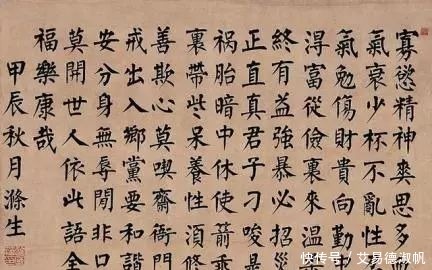 寡慾精神爽思多
氣衰少杯不亂性
氣勉傷財貴向勤
淂富從儉裏來溫
終有益強暴必招
正直真君子刁唆是
禍胎暗中休使箭乖
裏帶些呆養性須修
善欺心莫喫齋衙門
戒出入鄉黨要和諧
安分身無辱閒非口
莫開世人依此語全
福樂康哉
甲辰秋月滌生
快传号/艾易德淑帆